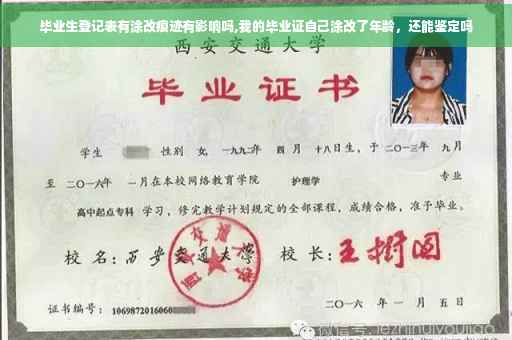 毕业生登记表有涂改痕迹有影响吗,我的毕业证自己涂改了年龄，还能鉴定吗
西安交通大学
毕业证书
学生 性别 女, 一九九二年 四月 十八日生，于二〇一三年 九月
至 二〇一六年 一月在本校网络教育学院 护理学 专业
高中起点专科 学习，修完教学计划规定的全部课程，成绩合格，准予毕业。
校 名: 西安交通大学 校 长: 王树国
西安交通大学
证书编号: 1069872016060
二〇一六 年 一 月 五 日
微信号: jiezhihuiyoujiao